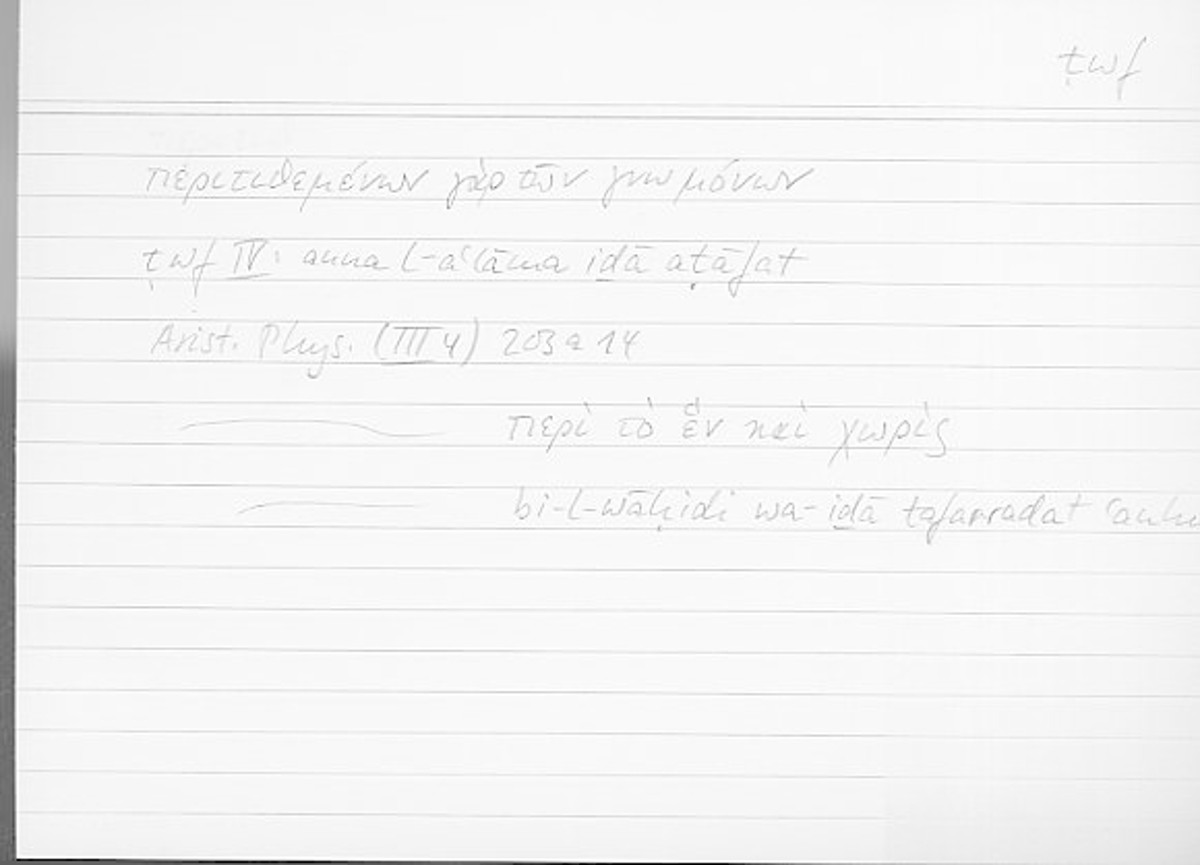 ṭwf
περιτιθεμένων γὰρ τῶν γνωμόνων
ṭwf IV: anna l-aʿlāma iḏā aṭāfat
Arist. Phys. (III 4) 203 a 14
περὶ τὸ ἓν καὶ χωρίς
bi-l-wāḥidi wa-iḏā tafarradat